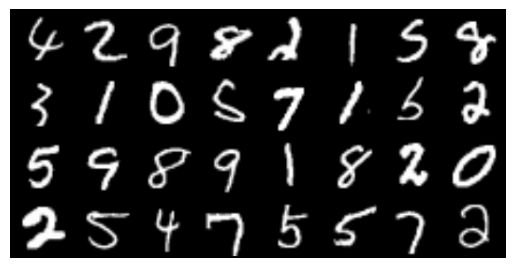 4 2 9 8 2 1 5 8
3 1 0 5 7 1 5 2
5 9 8 9 1 8 2 0
2 5 4 7 5 5 7 2